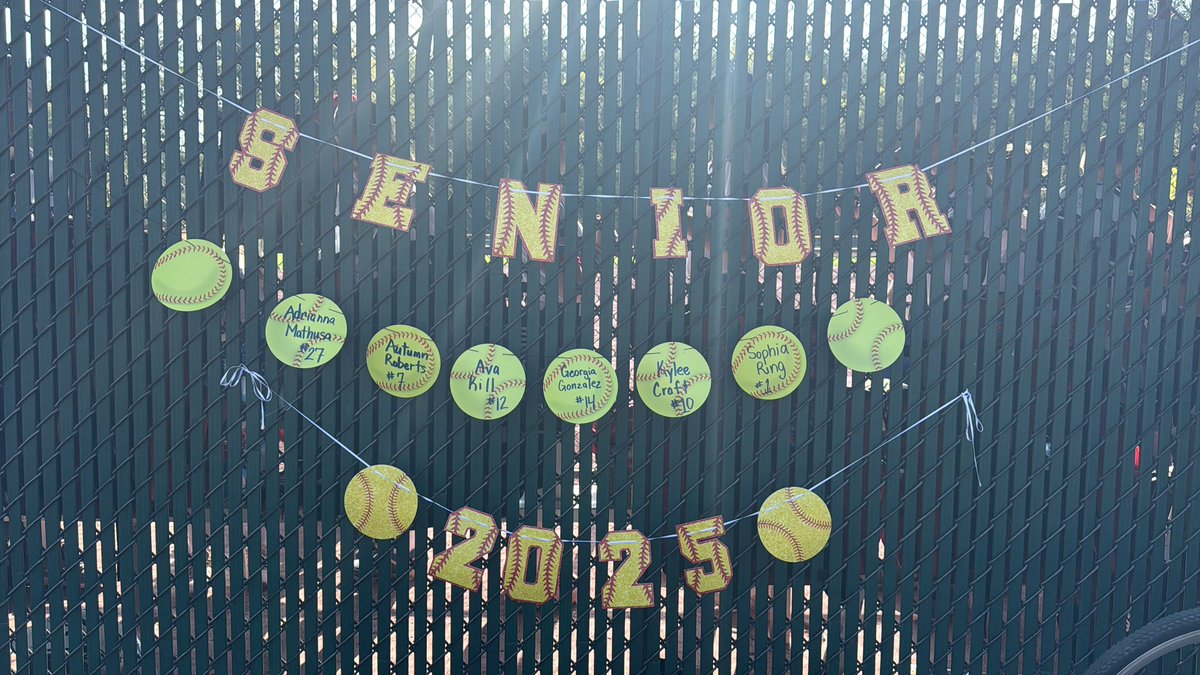 SENIOR
Adrianna
Mathusa
#27
Autumn
Roberts
#7
Ava
Kill
#12
Georgia
Gonzalez
#14
Kylee
Craft
#10
Sophia
Ring
#1
2025